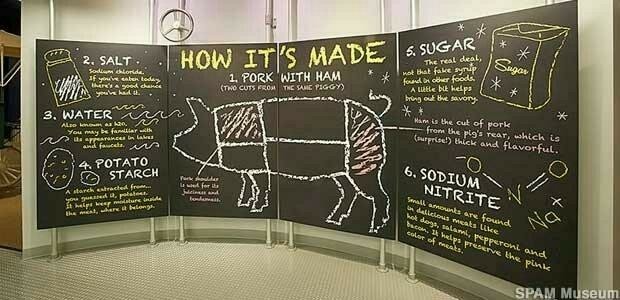 HOW IT'S MADE
1. PORK WITH HAM
(TWO CUTS FROM THE SAME PIGGY)
Pork shoulder
is used for its
juiciness and
tenderness.
Ham is the cut of pork
from the pig's rear, which is
(surprise!) thick and flavorful.
2. SALT
Sodium chloride.
If you've eaten today,
there's a good chance
you've had it.
3. WATER
Also known as h2o.
You may be familiar with
its appearances in lakes
and faucets.
4. POTATO
STARCH
A starch extracted from...
you guessed it, potatoes.
It helps keep moisture inside
the meat, where it belongs.
5. SUGAR
The real deal,
not that fake syrup
found in other foods.
A little bit helps
bring out the savory.
Sugar
6. SODIUM
NITRITE
Small amounts are found
in delicious meats like
hot dogs, salami, pepperoni and
bacon. It helps preserve the pink
color of meats.
N
O
Na
SPAM Museum